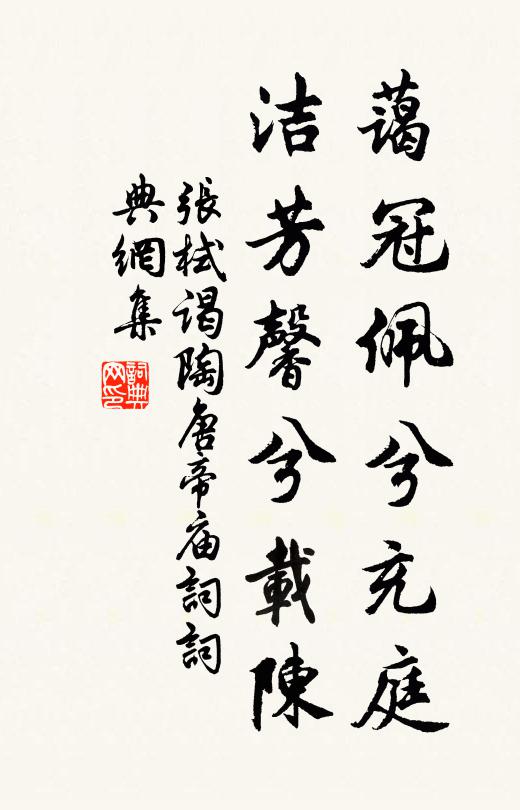 藹冠佩兮充庭
洁芳馨兮載陳
張栻谒陶唐帝庙詞詞
典網集
詞典网印